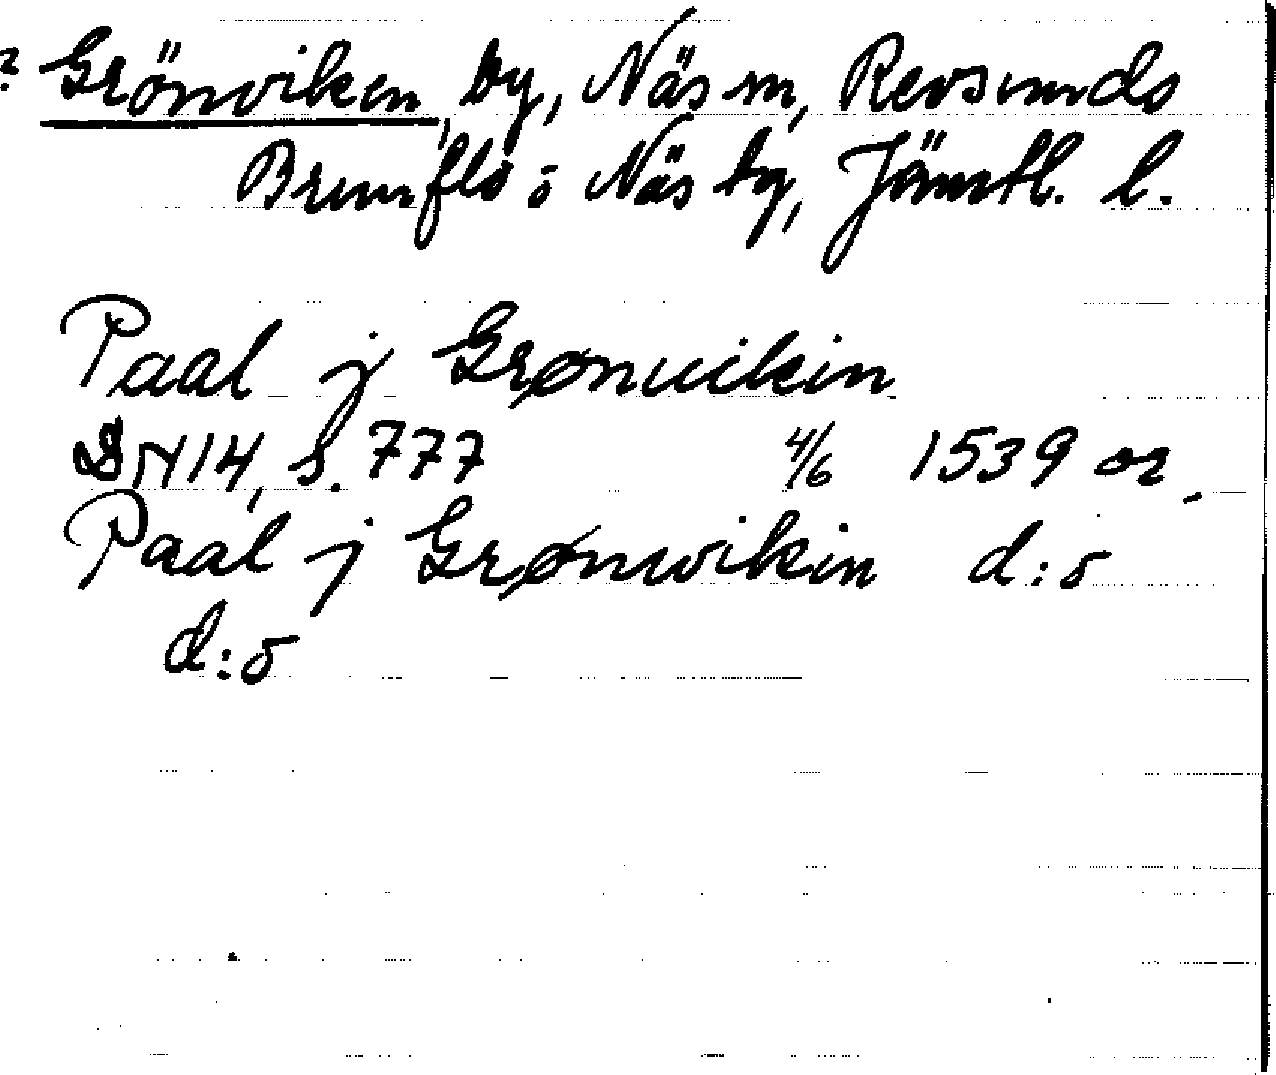 ? Grönviken, by, Näs sn, Revsunds
Brunflo o Näs tg, Jämtl. l.
Paal j Grønuikin
DN 14, s. 777 4/6 1539 or.
Paal j Grønwikin d:o
d:o